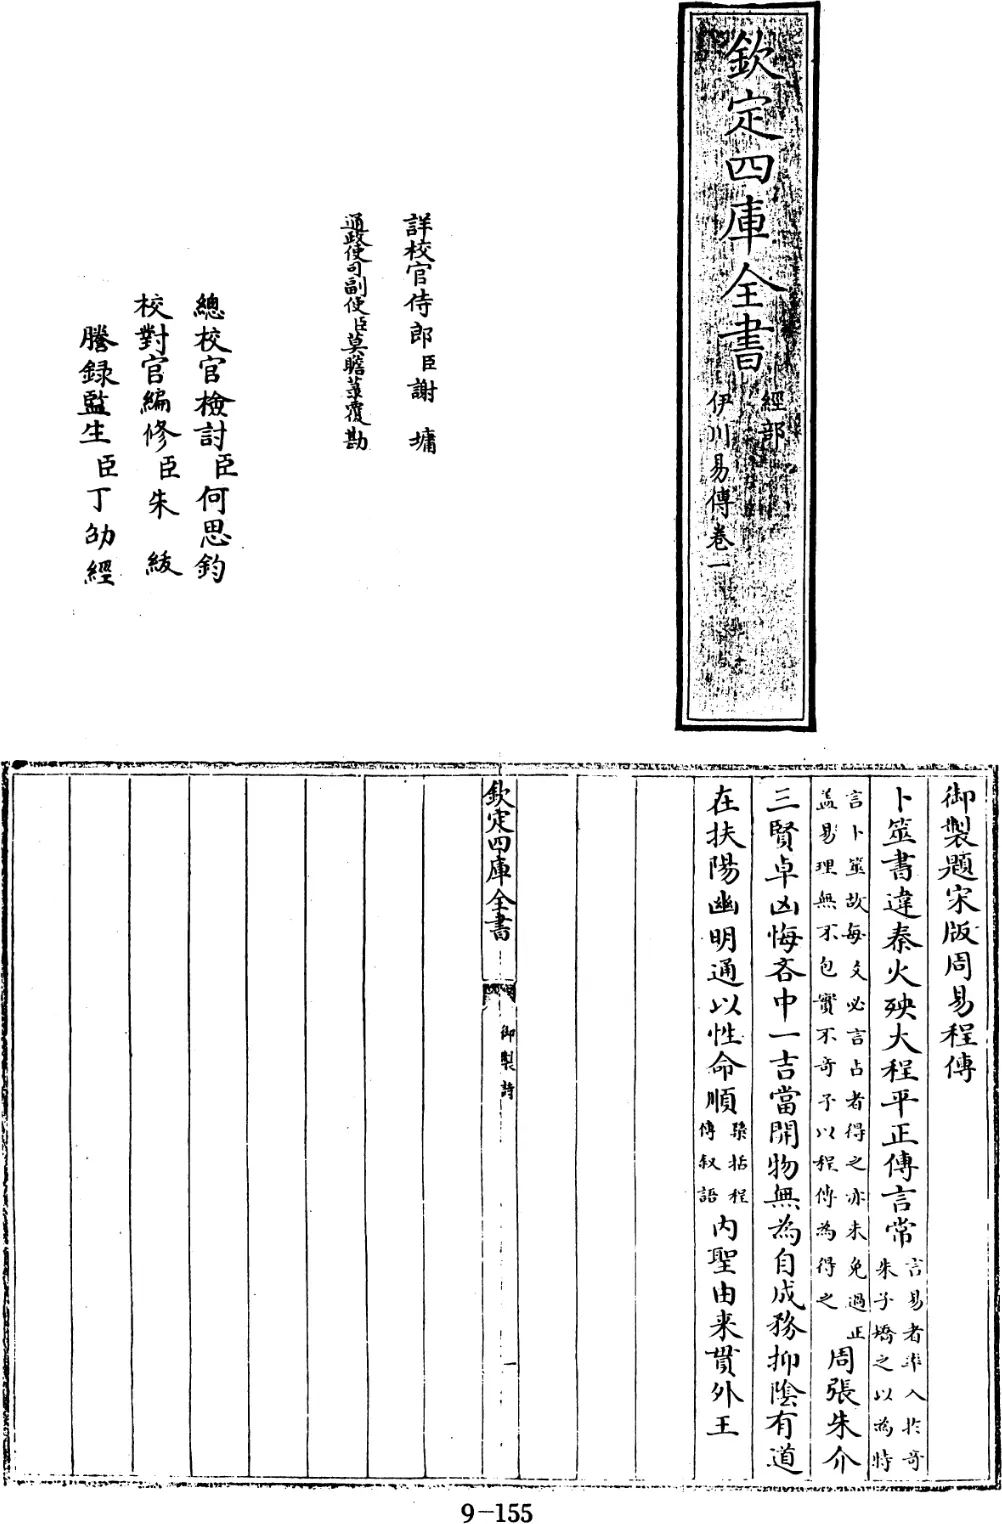 欽定四庫全書
經部
伊川易傳卷一
詳校官侍郎臣謝墉
通政使司副使臣莫瞻菉覆勘
總校官檢討臣何思鈞
校對官編修臣朱紱
謄錄監生臣丁劭經
御製題宋版周易程傳
卜筮書違秦火殃大程平正傳言常言易者率入扵奇朱子矯之以為特
言卜筮故每爻必言占者得之亦未免過正盖易理無不包實不奇予以程傳為得之周張朱介
三賢卓凶悔吝中一吉當開物無為自成務抑陰有道
在扶陽幽明通以性命順檃括程傳叙語内聖由来貫外王
欽定四庫全書
御製詩
一
9-155